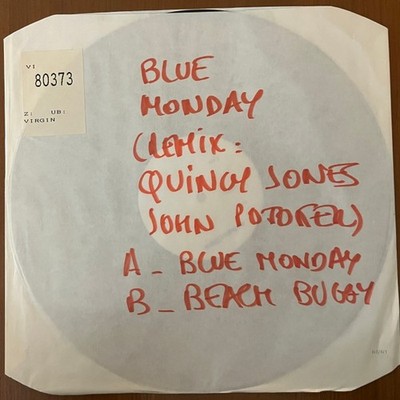 VI
80373
Z: UB:
VIRGIN
BLUE
MONDAY
(REMIX:
QUINCY JONES
JOHN POTOKER)
A - BLUE MONDAY
B - BEACH BUGGY